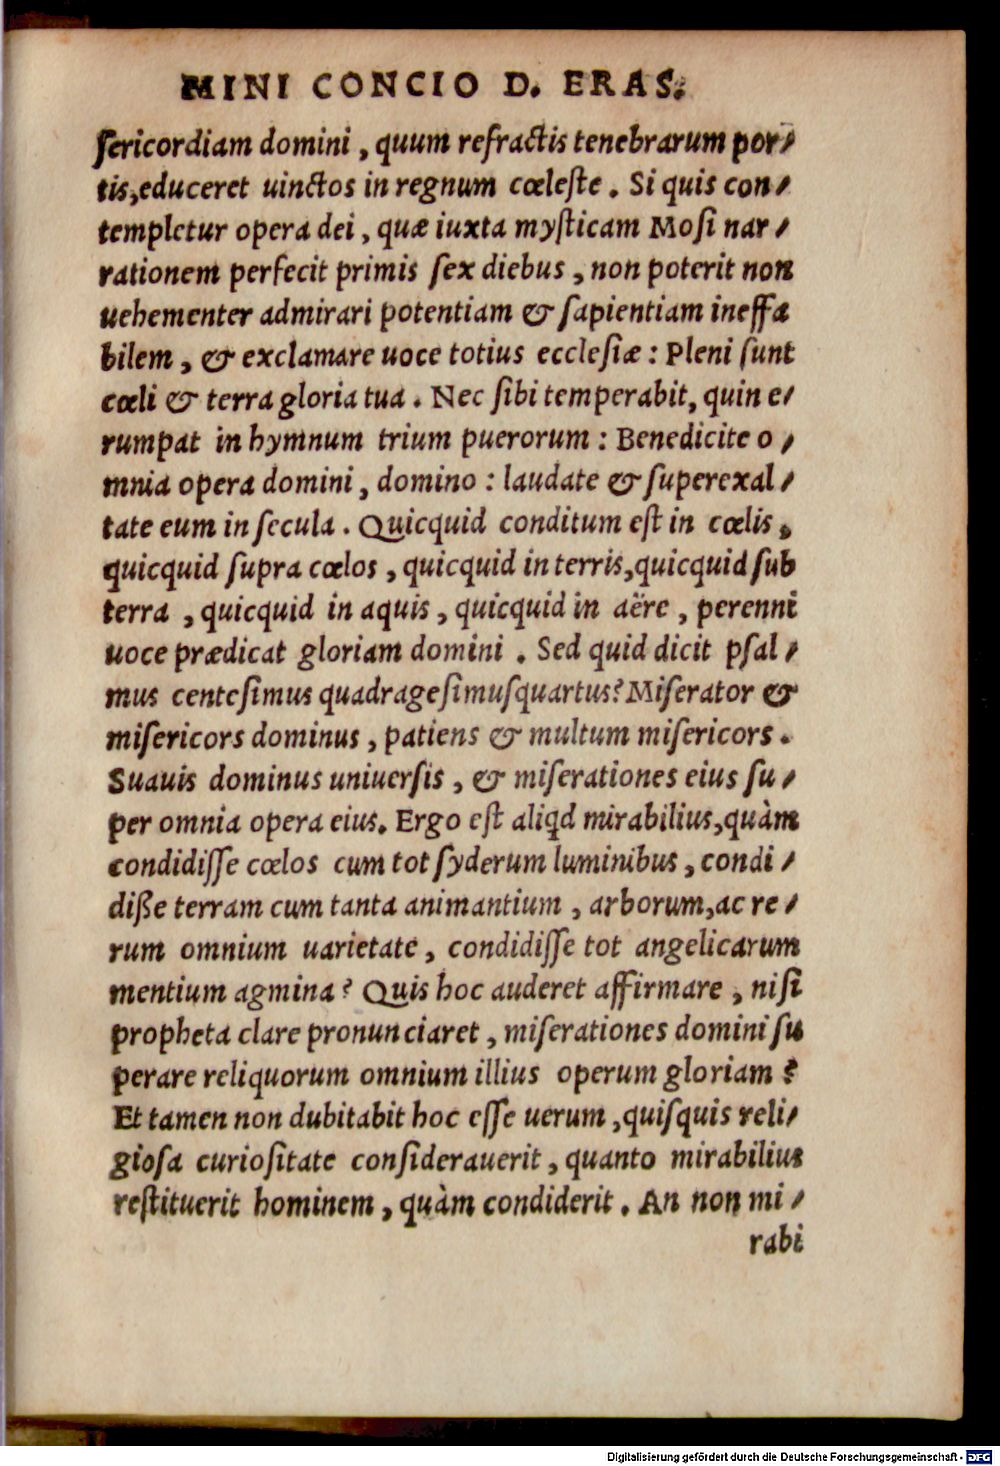 MINI CONCIO D. ERAS.
sericordiam domini, quum refractis tenebrarum por-
tis, educeret uinctos in regnum cœleste. Si quis con-
templetur opera dei, quæ iuxta mysticam Mosi nar-
rationem perfecit primis sex diebus, non poterit non
uehementer admirari potentiam & sapientiam ineffa
bilem, & exclamare uoce totius ecclesiæ: Pleni sunt
cœli & terra gloria tua. Nec sibi temperabit, quin e-
rumpat in hymnum trium puerorum: Benedicite o-
mnia opera domini, domino: laudate & superexal-
tate eum in secula. Quicquid conditum est in cœlis,
quicquid supra cœlos, quicquid in terris, quicquid sub
terra, quicquid in aquis, quicquid in aëre, perenni
uoce prædicat gloriam domini. Sed quid dicit psal-
mus centesimus quadragesimusquartus? Miserator &
misericors dominus, patiens & multum misericors.
Suauis dominus uniuersis, & miserationes eius su-
per omnia opera eius. Ergo est aliqd mirabilius, quàm
condidisse cœlos cum tot syderum luminibus, condi-
diße terram cum tanta animantium, arborum, ac re-
rum omnium uarietate, condidisse tot angelicarum
mentium agmina? Quis hoc auderet affirmare, nisi
propheta clare pronunciaret, miserationes domini su
perare reliquorum omnium illius operum gloriam?
Et tamen non dubitabit hoc esse uerum, quisquis reli-
giosa curiositate considerauerit, quanto mirabilius
restituerit hominem, quàm condiderit. An non mi-
rabi
Digitalisierung gefördert durch die Deutsche Forschungsgemeinschaft - DFG